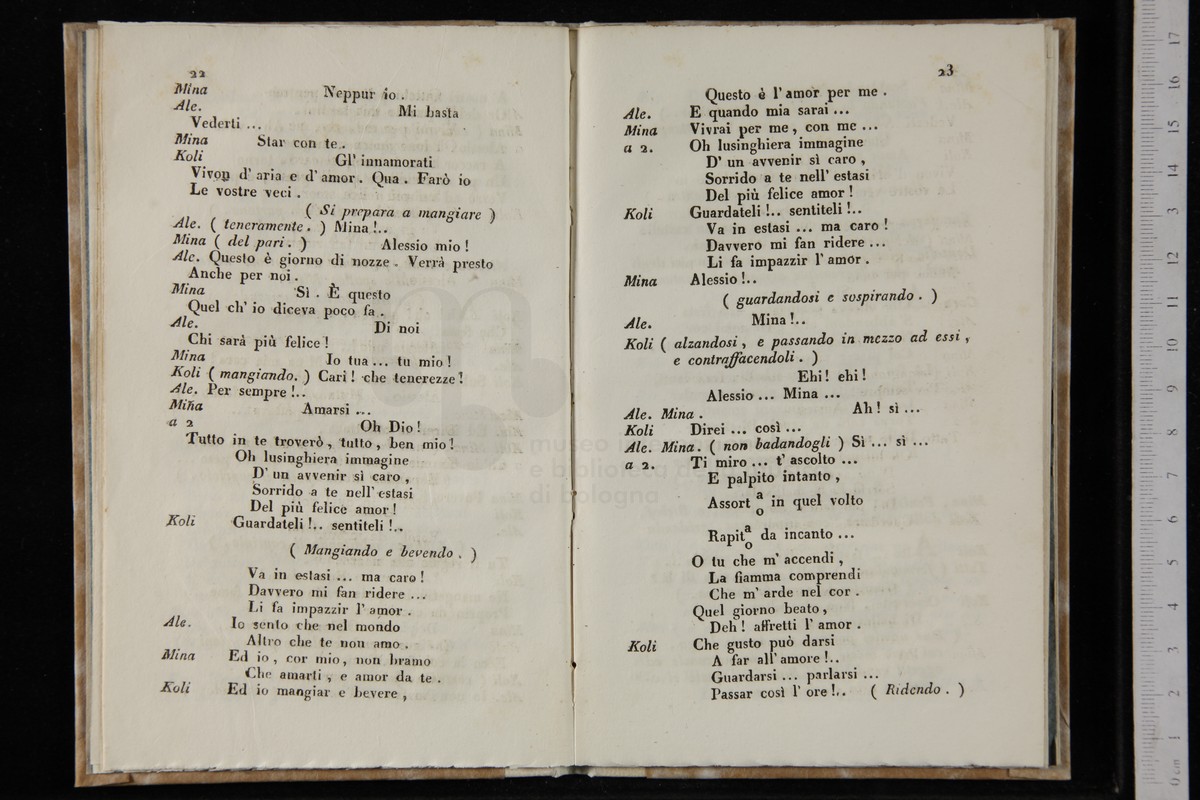 22
Mina Neppur io .
Ale. Mi basta
Vederti ...
Mina Star con te..
Koli Gl' innamorati
Vivon d' aria e d' amor . Qua . Farò io
Le vostre veci .
( Si prepara a mangiare )
Ale. ( teneramente . ) Mina !..
Mina ( del pari . ) Alessio mio !
Ale. Questo è giorno di nozze . Verrà presto
Anche per noi .
Mina Sì . È questo
Quel ch' io diceva poco fa .
Ale. Di noi
Chi sarà più felice !
Mina Io tua ... tu mio !
Koli ( mangiando. ) Cari ! che tenerezze !
Ale. Per sempre !..
Mina Amarsi ...
a 2 Oh Dio !
Tutto in te troverò , tutto , ben mio !
Oh lusinghiera immagine
D' un avvenir sì caro ,
Sorrido a te nell' estasi
Del più felice amor !
Koli Guardateli !.. sentiteli !..
( Mangiando e bevendo . )
Va in estasi ... ma caro !
Davvero mi fan ridere ...
Li fa impazzir l' amor .
Ale. Io sento che nel mondo
Altro che te non amo .
Mina Ed io , cor mio , non bramo
Che amarti , e amor da te .
Koli Ed io mangiar e bevere ,
23
Questo è l' amor per me .
Ale. E quando mia sarai ...
Mina Vivrai per me , con me ...
a 2. Oh lusinghiera immagine
D' un avvenir sì caro ,
Sorrido a te nell' estasi
Del più felice amor !
Koli Guardateli !.. sentiteli !..
Va in estasi ... ma caro !
Davvero mi fan ridere ...
Li fa impazzir l' amor .
Mina Alessio !..
( guardandosi e sospirando . )
Ale. Mina !..
Koli ( alzandosi , e passando in mezzo ad essi ,
e contraffacendoli . )
Ehi ! ehi !
Alessio ... Mina ...
Ale. Mina . Ah ! sì ...
Koli Direi ... così ...
Ale. Mina. ( non badandogli ) Sì ... sì ...
a 2. Ti miro ... t' ascolto ...
E palpito intanto ,
Assort a/o in quel volto
Rapit a/o da incanto ...
O tu che m' accendi ,
La fiamma comprendi
Che m' arde nel cor .
Quel giorno beato ,
Deh ! affretti l' amor .
Koli Che gusto può darsi
A far all' amore !..
Guardarsi ... parlarsi ...
Passar così l' ore !.. ( Ridendo . )
e biblioteca
di bologna
0 cm 1 2 3 4 5 6 7 8 9 10 11 12 13 14 15 16 17